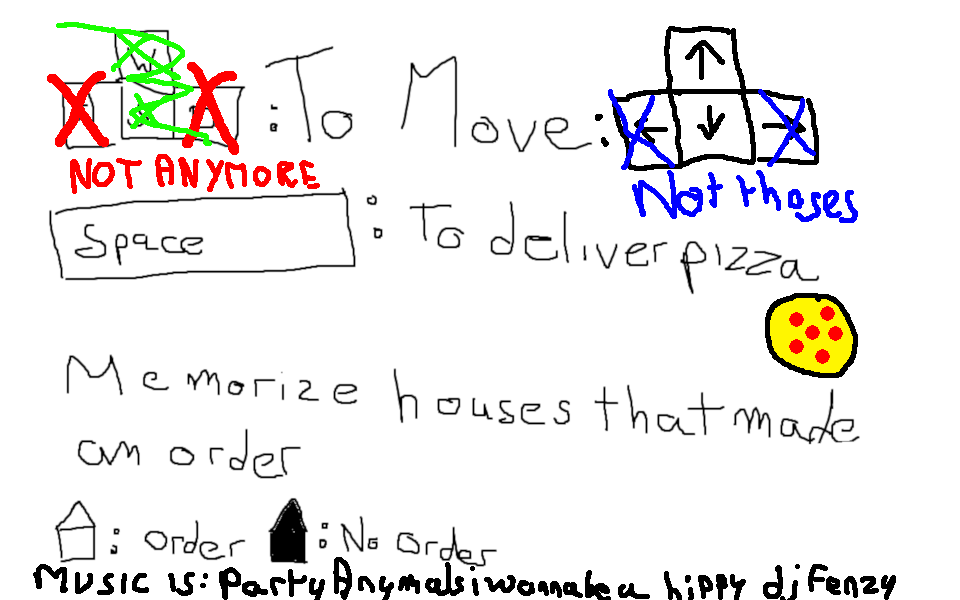 W
: To Move:
NOT ANYMORE
Not thoses
Space : To deliver pizza
Memorize houses that made
an order
: order : No order
Music is: PartyAnymalsiwannabea hippy djFenzy